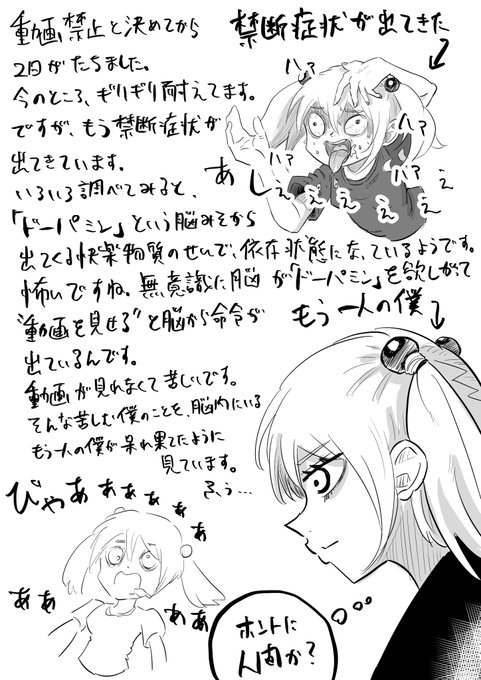 動画禁止と決めてから
2日がたちました。
今のところ、ギリギリ耐えてます。
ですが、もう禁断症状が
出てきています。
いろいろ調べてみると、
「ドーパミン」という脳みそから
出てくる快楽物質のせいで、依存状態になっているようです。
怖いですね。無意識に脳が「ドーパミン」を欲しがって
"動画を見せろ"と脳から命令が
出ているんです。
動画が見れなくて苦しいです。
そんな苦しむ僕のことを、脳内にいる
もう一人の僕が呆れ果てたように
見ています。
ふぅ…
禁断症状が出てきた
ハァ
ハァ
ハァ
ハァ
あしぇぇぇぇぇ
もう一人の僕
びゃあぁぁぁぁぁ
ああ
ああ
ホントに
人間か?